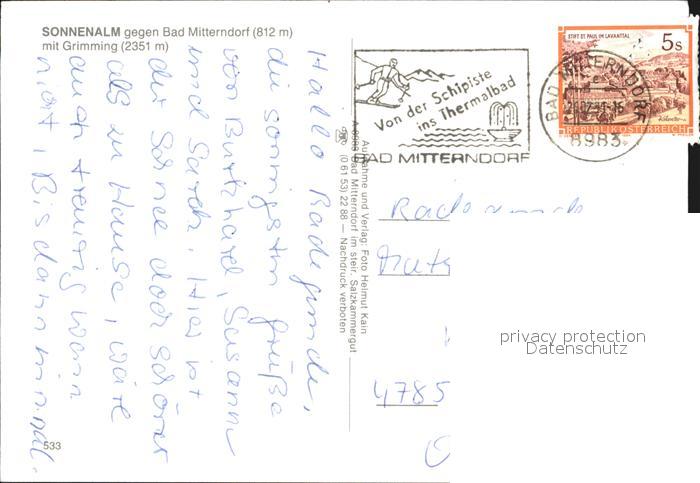 SONNENALM gegen Bad Mitterndorf (812 m)
mit Grimming (2351 m)
Hallo Radegunde,
die sonnigsten Grüße
von Burkhard, Susann
und Sarah. Hier ist
der Schnee doch schöner
als zu Hause, wäre
auch traurig wenn
nicht, Bis dann
533
Aufnahme und Verlag: Foto Helmut Kain
A-8983 Bad Mitterndorf im steir. Salzkammergut
(0 61 53) 22 88 — Nachdruck verboten
Von der Schipiste
ins Thermalbad
BAD MITTERNDORF
STIFT ST. PAUL IM LAVANTTAL
5s
REPUBLIK ÖSTERREICH
BAD MITTERNDORF
8983
4785
privacy protection
Datenschutz